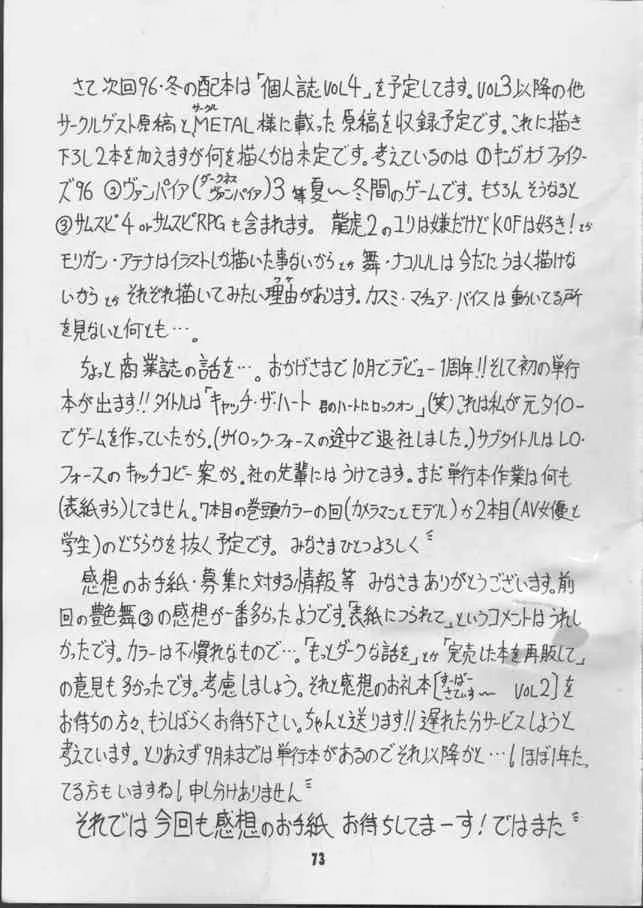 さて次回96・冬の配本は「個人誌VOL4」を予定してます。VOL3以降の他
サークルゲスト原稿と、METAL様に載った原稿を収録予定です。これに描き
下ろし2本を加えますが何を描くかは未定です。考えているのは①キングオブファイター
ズ96 ②ヴァンパイア(ダークネス ヴァンパイア)3 等夏〜冬間のゲームです。もちろんそうなると
③サムスピ4 orサムスピRPGも含まれます。 龍虎2のユリは嫌だけどKOFは好き!とか
モリガン・アテナはイラストしか描いた事ないからとか 舞・ナコルルは今だにうまく描けな
いからとか それぞれ描いてみたい理由があります。カスミ・マチュア・バイスは動いてる所
を見ないと何とも…。
ちょっと商業誌の話を…。おかげさまで10月でデビュー1周年!!そして初の単行
本が出ます!!タイトルは「キャッチ・ザ・ハート 君のハートにロックオン」(笑)これは私が元タイロー
でゲームを作っていたから。(サイロック・フォースの途中で退社しました。)サブタイトルはLO・
フォースのキャッチコピー案から。社の先輩にはうけてます。まだ単行本作業は何も
(表紙すら)してません。7本目の巻頭カラーの回(カメラマンとモデル)か2本目(AV女優と
学生)のどちらかを抜く予定です。 みなさまひとつよろしく
感想のお手紙・募集に対する情報等 みなさまありがとうございます。前
回の艶色舞③の感想が一番多かったようです。「表紙につられて」というコメントはうれし
かったです。カラーは不慣れなもので…。「もっとダークな話を」とか「完売した本を再販して」
の意見も多かったです。考慮しましょう。それと感想のお礼本[すーぱーさでぃすてぃ〜 VOL2]を
お待ちの方々、もうしばらくお待ち下さい。ちゃんと送ります!!遅れた分サービスしようと
考えています。とりあえず9月末までは単行本があるのでそれ以降かと…。ほぼ1年た。
てる方もいますね。申し分けありません
それでは今回も感想のお手紙 お待ちしてまーす!ではまた
73